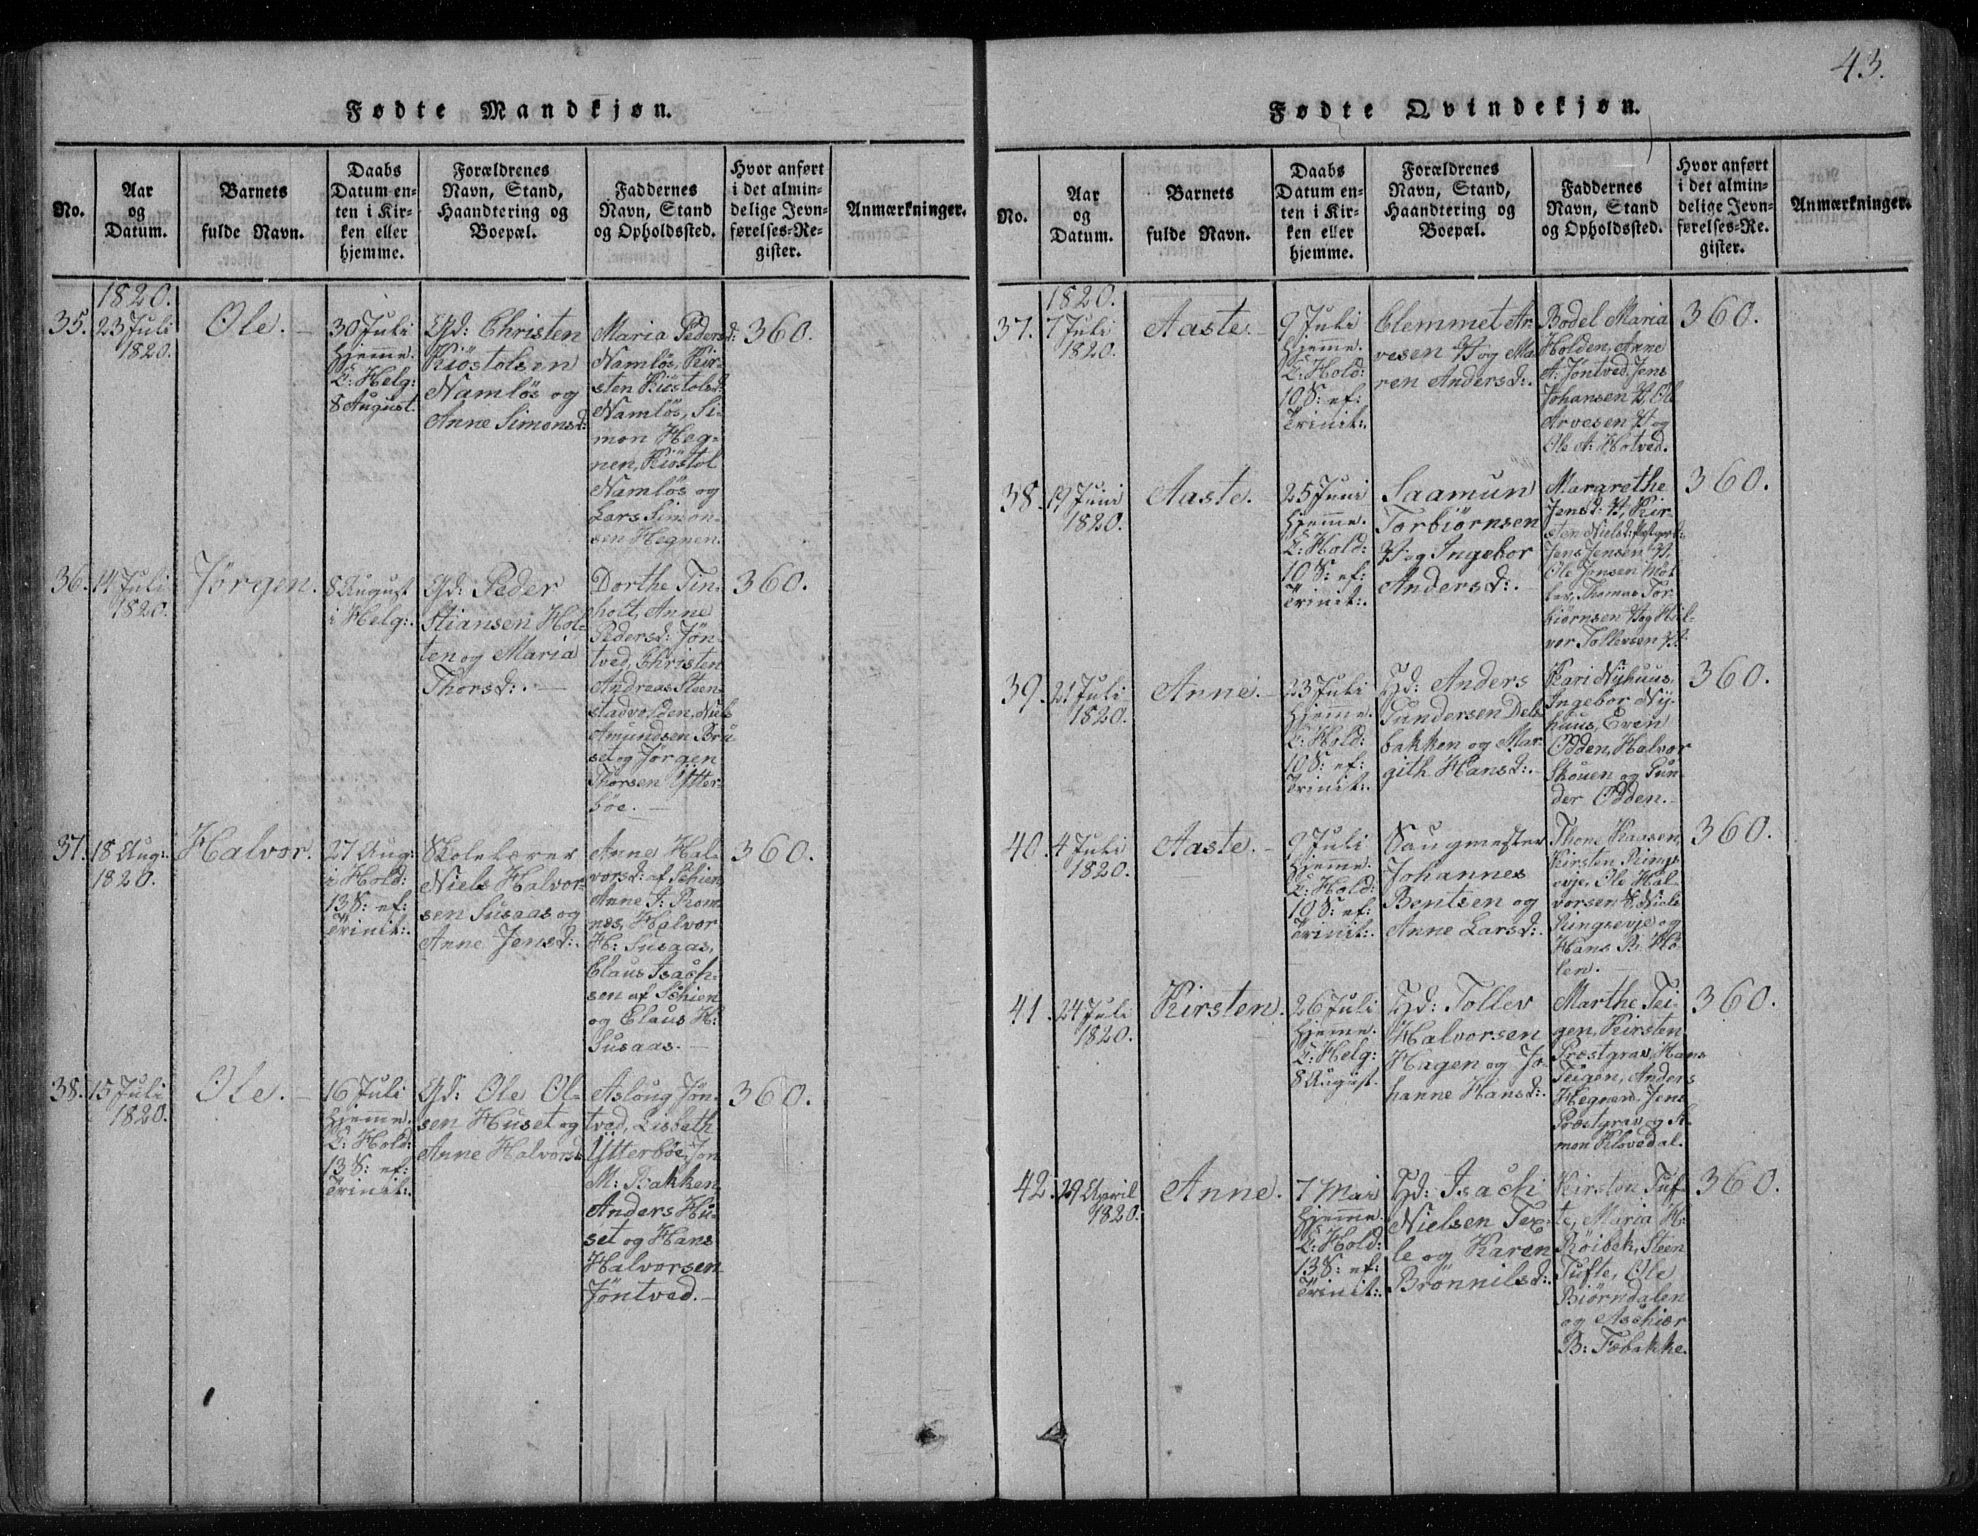 43.
Fødte Mandkjøn.
No.
Aar
og
Datum.
Barnets
fulde Navn.
Daabs
Datum en-
ten i Kir-
ken eller
hjemme.
Forældrenes
Navn, Stand,
Haandtering og
Boepæl.
Faddernes
Navn, Stand
og Opholdssted.
Hvor anført
i det almin-
delige Jevn-
førelses-Re-
gister.
Anmærkninger.
1820.
35.
23 Juli
1820.
Ole.
30 Juli
hjemme.
T: Helg:
8 August.
Gd: Christen
Kiöstolsen
Namlös og
Anne Simonsd:
Maria Pedersd:
Namlös, Kir-
sten Kiöstolsd:
Namlös, Si-
mon Heg-
nen, Kiöstol
Namlös og
Lars Simon-
sen Hegnen.
360.
36.
14 Juli
1820.
Jørgen.
8 August
i Helg:
Gd: Peder
Stiansen Hol-
ten og Maria
Thorsd:.
Dorthe Tin-
holt, Anne
Pedersd: Jön-
tved, Christen
Andreas Steen-
stadvolden, Niels
Amundsen Bru
set og Jørgen
Thorsen Ytter-
böe.
360.
37.
18 Aug:
1820.
Halvor.
27 Aug:
i Hold:
13 S: ef:
Trinit:.
Skolelærer
Niels Halvor-
sen Susaas og
Anne Jensd:.
Anne Hal-
vorsd: af Schien
Anne J: Rom-
nes, Halvor
H: Susaas,
Claus Isach-
sen af Schien
og Claus H:
Susaas.
360.
38.
15 Juli
1820.
Ole.
16 Juli
hjemme.
T: Hold:
13 S: ef:
Trinit:.
Gd: Ole Ol-
sen Huset og
Anne Halvorsd
Aslaug Jön-
tved, Lisbeth
Ytterböe, Jon
M: Bakken,
Anders Hu-
set og Hans
Halvorsen
Jöntved.
360.
Fødte Qvindekjøn.
No.
Aar
og
Datum.
Barnets
fulde Navn.
Daabs
Datum en-
ten i Kir-
ken eller
hjemme.
Forældrenes
Navn, Stand,
Haandtering og
Boepæl.
Faddernes
Navn, Stand
og Opholdssted.
Hvor anført
i det almin-
delige Jevn-
førelses-Re-
gister.
Anmærkninger.
1820.
37.
7 Juli
1820.
Aaste.
9 Juli
hjemme.
T: Hold:
10 S: ef:
Trinit:.
Clemmet Ar
vesen og Ma
ren Andersd:.
Bodel Maria
Holden, Anne
A: Jöntved, Jens
Johansen Ole
Arvesen og
Ole A: Hotved.
360.
38.
19 Juni
1820.
Aaste.
25 Juni
hjemme.
T: Hold:
10 S: ef:
Trinit:.
Saamun
Torbiörnsen
og Ingebor
Andersd:.
Margrethe
Jensd: Kir
sten Nielsd:
Jens Jensen
Ole Jensen Möl
ler, Thomas Tor
biörnsen og Hal-
vor Tollevsen
360.
39.
21 Juli
1820.
Anne.
23 Juli
hjemme.
T: Hold:
10 S: ef:
Trinit:.
Hd: Anders
Gundersen Dels
bakken og Mar
gith Hansd:.
Kari Nyhuus,
Ingebor Ny-
huus, Even
Odden, Halvor
Skouen og Gun
der Odden.
360.
40.
4 Juli
1820.
Aaste.
9 Juli
hjemme.
T: Hold:
10 S: ef:
Trinit:.
Saugmester
Johannes
Bentsen og
Anne Larsd:.
Thone Kaasen,
Kirsten Rings-
evje, Ole Hal-
vorsen Niels
Ringsevje og
Hans B: Ho-
len.
360.
41.
24 Juli
1820.
Kirsten.
26 Juli
hjemme.
T: Helg:
8 August.
Hd: Tollev
Halvorsen
Hagen og Jo-
hanne Hansd:.
Marthe Tei-
gen, Kirsten
Præstgrav, Hans
Teigen, Anders
Hegnen, Jens
Præstgrav og Si-
mon Klovedal.
360.
42.
29 April
1820.
Anne.
7 Mai
hjemme.
T: Hold:
13 S: ef:
Trinit:.
Hd: Isach
Nielsen Tex-
le og Karen
Brönnilsd:.
Kirsten Tuf-
te, Maria H:
Röibek, Steen
Tufte, Ole
Biörndalen
og Aschier
B: Fæbakke.
360.